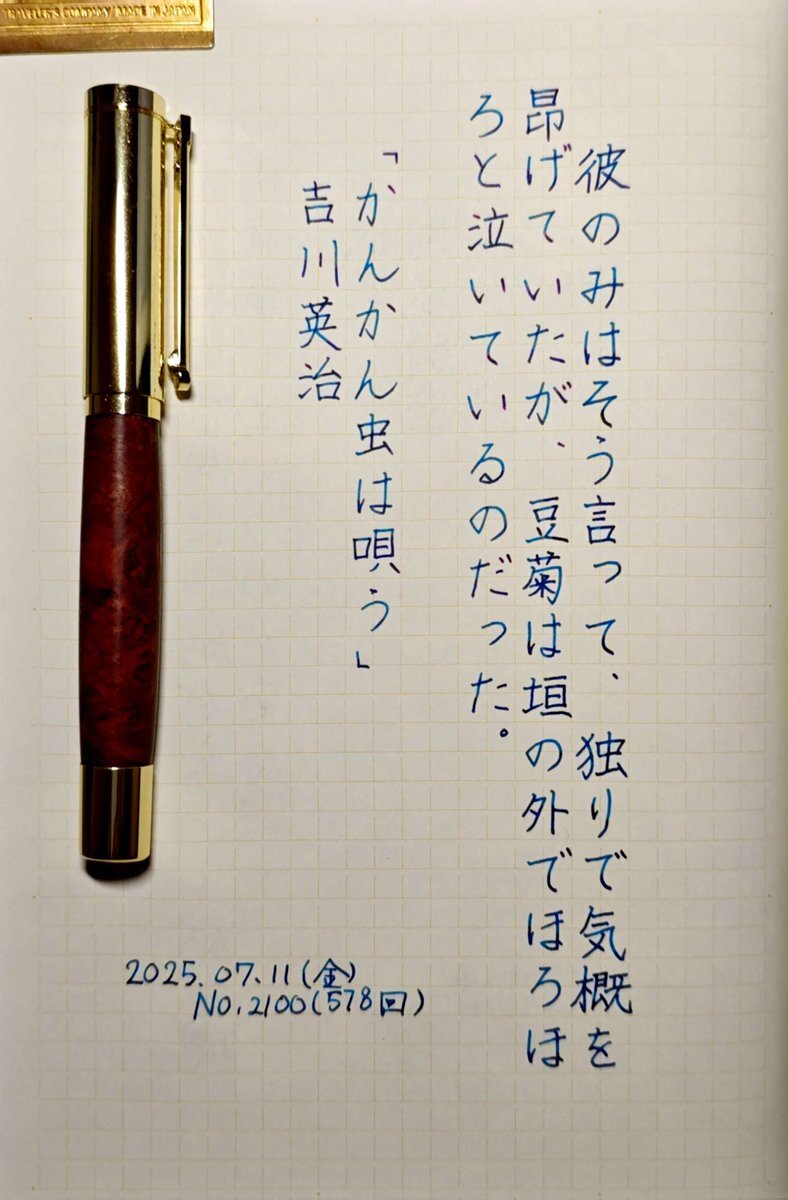 TRAVELER'S COMPANY MADE IN JAPAN
彼のみはそう言って、独りで気概を
昂げていたが、豆菊は垣の外でほろほ
ろと泣いているのだった。
「かんかん虫は唄う」
吉川英治
2025.07.11(金)
No.2100(578回)